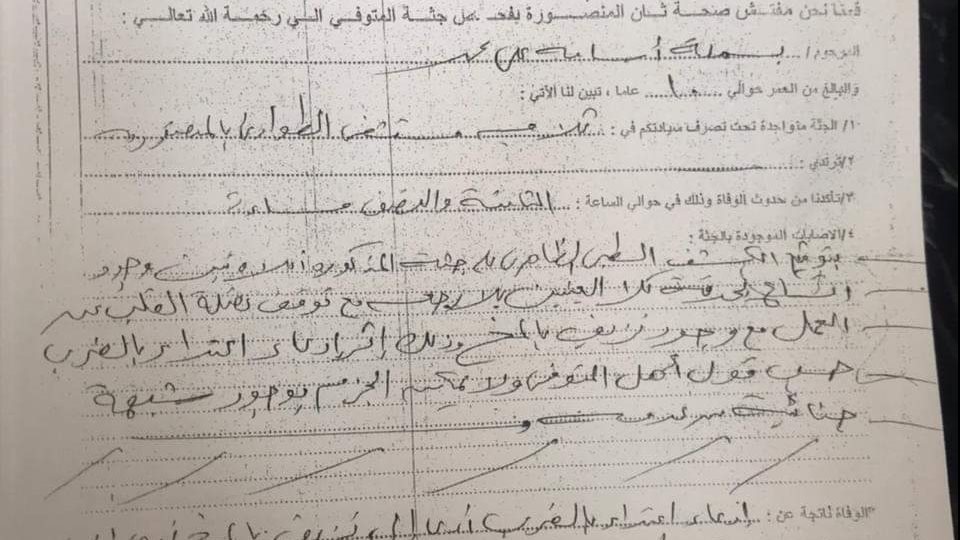 قمنا نحن مفتش صحة ثان المنصورة بفحص جثة المتوفي الي رحمة الله تعالي :
المرحوم / بسملة أسامة علي محمد
والبالغ من العمر حوالي ١٠ عاما ، تبين لنا الآتي :
١/ الجثة متواجدة تحت تصرف سيادتكم في : ثلاجة مستشفى الطوارئ بالمنصورة
٢/ترتدي :
٣/تأكدنا من حدوث الوفاة وذلك في حوالي الساعة : الثانية والنصف مساءً
٤/الاصابات الموجودة بالجثة :
بتوقيع الكشف الطبي الظاهري على جثة المذكورة أعلاه تبين وجود
اتساع بحدقة كلا العينين مع توقف عضلة القلب عن
العمل مع وجود نزيف بالمخ وذلك إثر ادعاء اعتداء بالضرب
حسب قول أهل المتوفى ولا يمكننا الجزم بوجود شبهة
جنائية من عدمه
الوفاة ناتجة عن : ادعاء اعتداء بالضرب أدى إلى نزيف